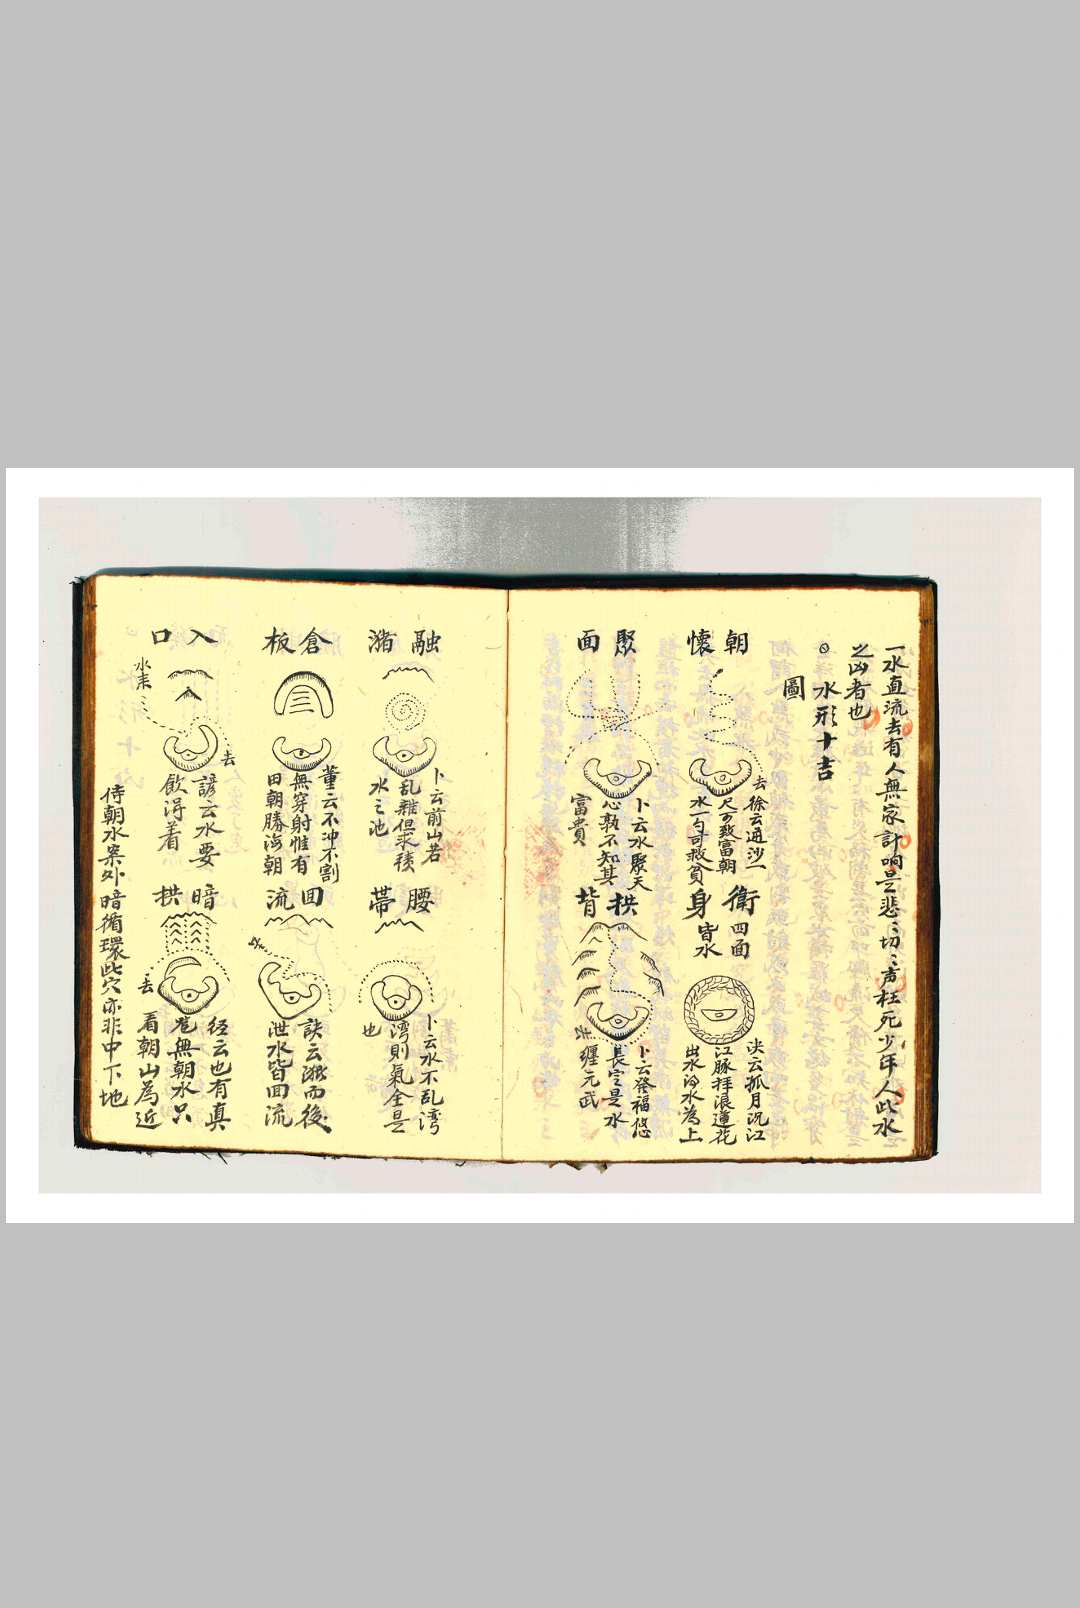 一水直流去有人無家計响是悲〻切〻声枉死少年人此水
之凶者也
⊙水形十吉
圖
朝懷
去
徐云通沙一
尺可致富朝
水一勺可救貧
衛身
四面
皆水
決云孤月沉江
江豚拜浪蓮花
出水浮水為上
聚面
卜云水聚天
心孰不知其
富貴
拱背
去
卜云發福悠
長定是水
纏元武
融瀦
卜云前山若
乱雜但求積
水之池
腰帶
卜云水不乱湾
湾則氣全是
也
倉板
董云不冲不割
無穿射惟有
田朝勝海朝
回流
訣云派而後
泄水皆回流
入口
水来
去
諺云水要
飲淂着
暗拱
去
径云也有真
龍無朝水只
看朝山為近
侍朝水案外暗循環此穴亦非中下地